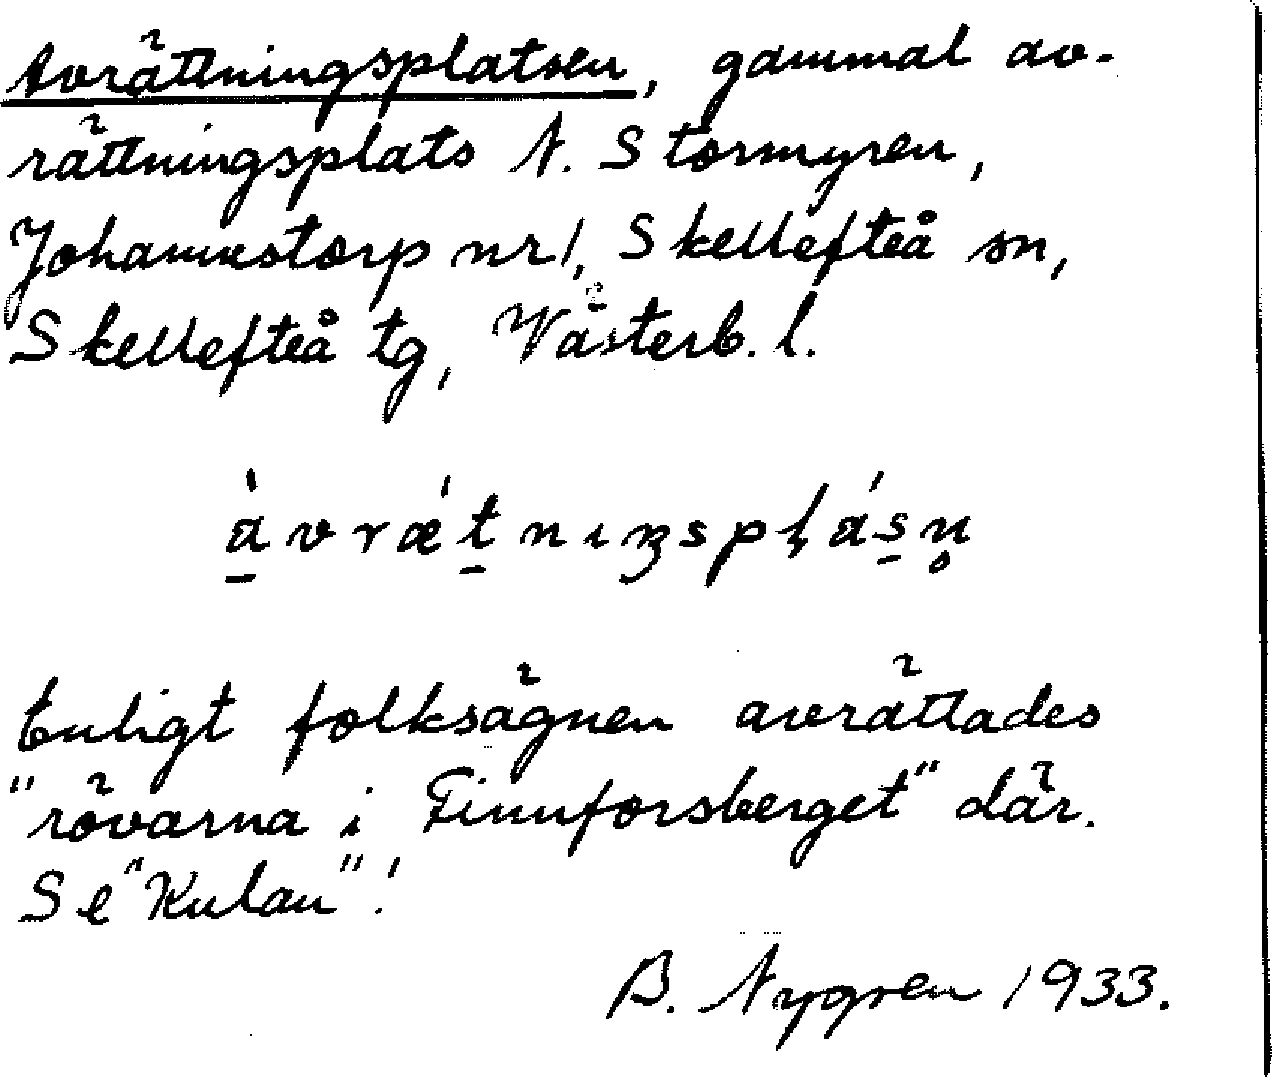 Avrättningsplatsen, gammal av-
rättningsplats N. Stormyren,
Johannestorp nr 1, Skellefteå sn,
Skellefteå tg, Västerb. l.
àvrǽtnıŋspļásn̥
Enligt folksägnen avrättades
"rövarna i Finnforsberget" där.
Se "Kulan"!
B. Nygren 1933.